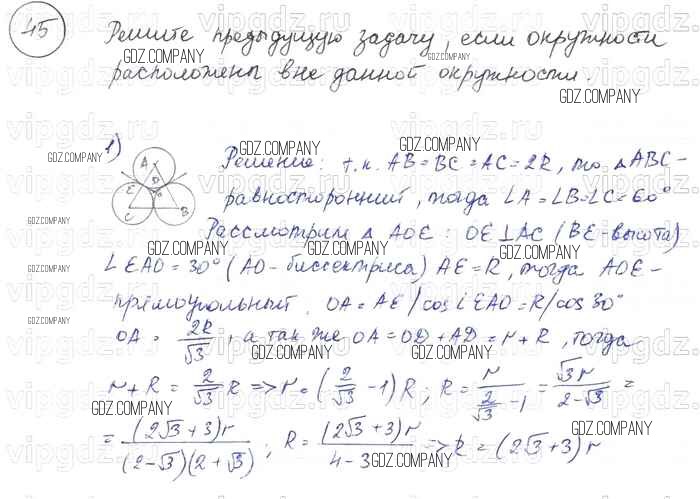 45
Решите предыдущую задачу, если окружности
GDZ.COMPANY
расположены вне данной окружности.
GDZ.COMPANY
1)
A
E
D
O
C
B
Решение: т.к. AB=BC=AC=2R, то △ABC-
равносторонний, тогда ∠A=∠B=∠C=60°
Рассмотрим △ AOE: OE⊥AC (BE-высота)
∠EAO=30° (AO-биссектриса) AE=R, тогда AOE-
прямоугольный. OA = AE/cos∠EAO=R/cos30°
OA = 2R/√3, а так же OA=OD+AD=r+R, тогда
r+R = 2/√3 R => r = (2/√3 -1)R; R = r/(2/√3 -1) = √3r/(2-√3) =
= (2√3+3)r/((2-√3)(2+√3)); R = (2√3+3)r/(4-3) => R = (2√3+3)r
GDZ.COMPANY
vipgdz.ru